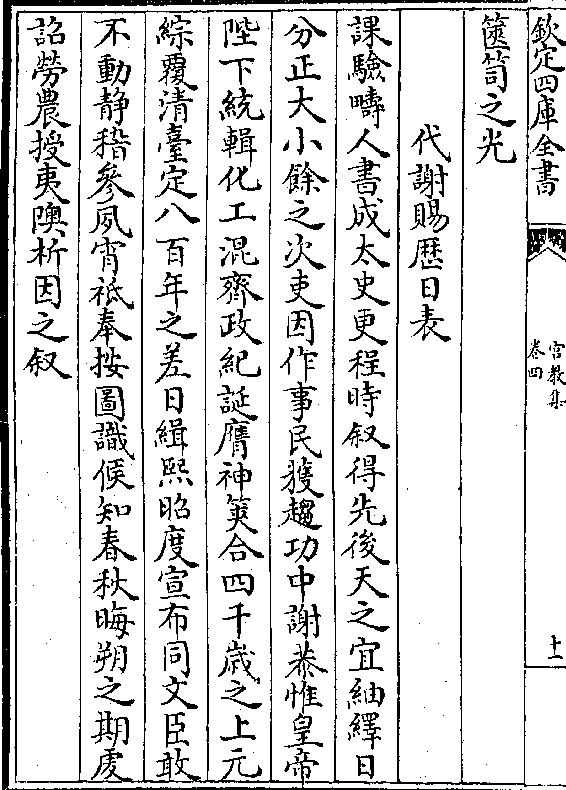 欽定四庫全書
宫教集
卷四
十一
篋笥之光
代謝賜歴日表
課驗疇人書成太史更程時叙得先後天之宜紬繹日
分正大小餘之次吏因作事民獲趨功中謝恭惟皇帝
陛下統輯化工混齊政紀誕膺神筴合四千歲之上元
綜覆清臺定八百年之差日緝熙昭度宣布同文臣敢
不動静稽參夙宵祗奉按圖識候知春秋晦朔之期虔
詔勞農授夷隩析因之叙